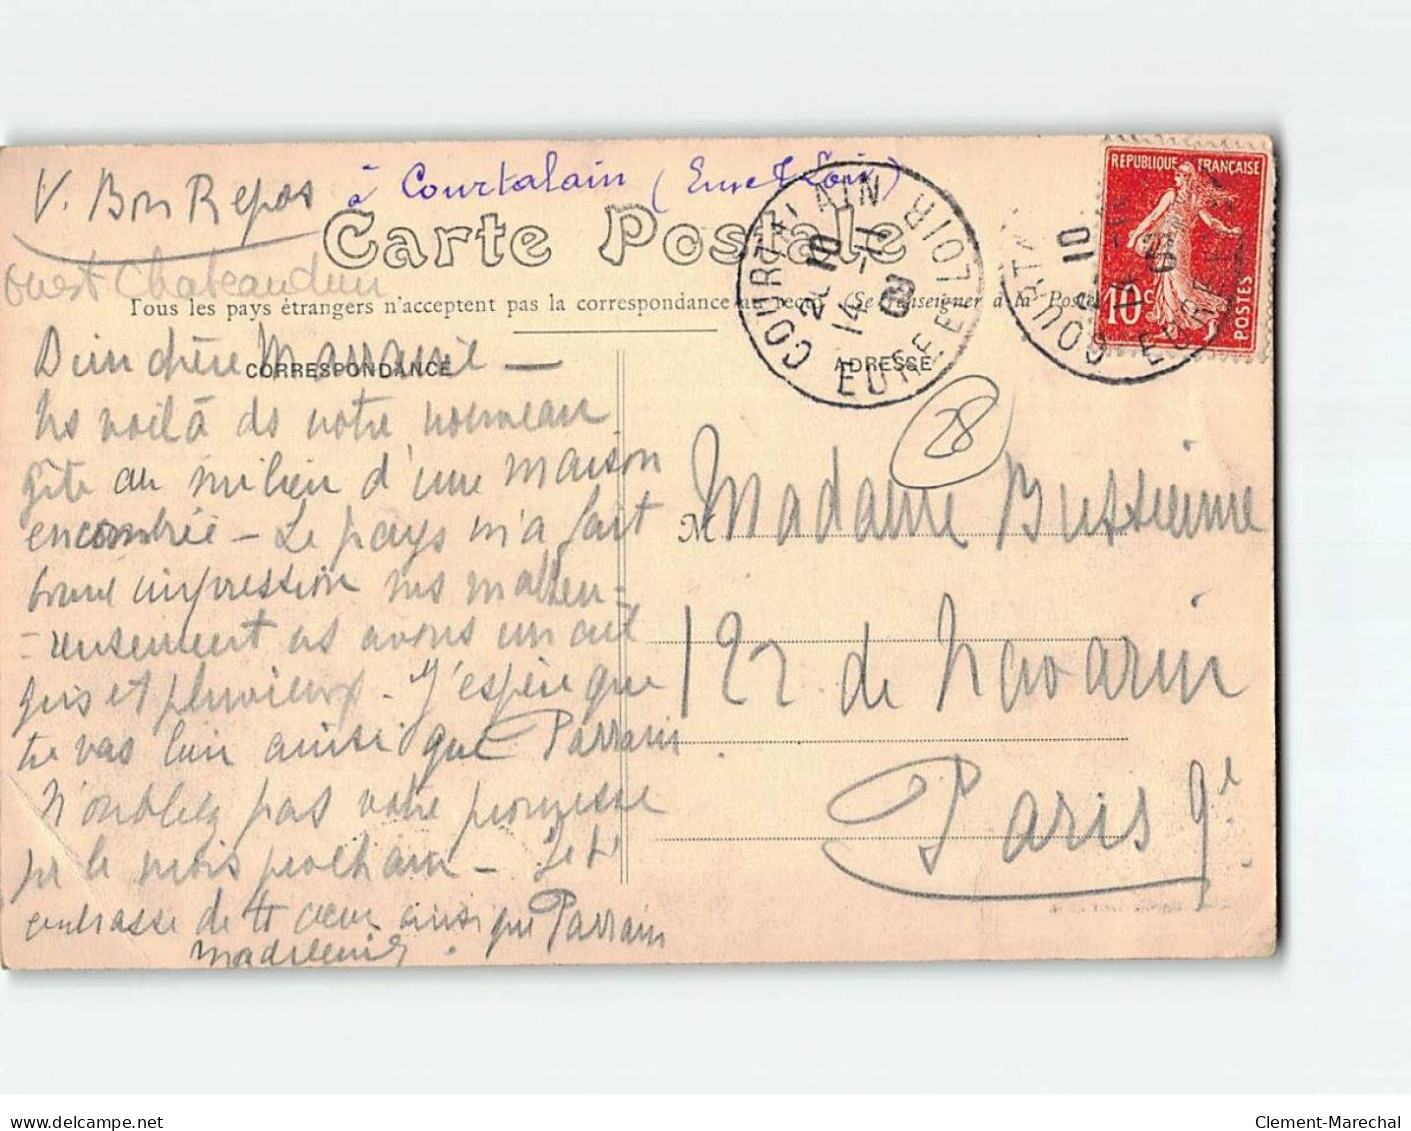 V. Bon Repos
à Courtalain (Eure & Loir)
Carte Postale
ouest Chateaudun
Tous les pays étrangers n'acceptent pas la correspondance au recto (Se renseigner à la Poste
COURTALAIN
EURE ET LOIR
14 -11
09
RÉPUBLIQUE FRANÇAISE
10c
POSTES
CORRESPONDANCE
ADRESSE
28
chère
Ns voilà ds notre nouveau
gîte au milieu d'une maison
encombrée – Le pays m'a fait
bonne impression mais malheu-
-reusement ns avons un ciel
gris et pluvieux. J'espère que
tu vas bien ainsi que Parrain
N'oubliez pas votre promesse
pr le mois prochain – Je t'
embrasse de tt cœur ainsi que Parrain
Madeleine
M Madame Bussienne
122 de Navarin
Paris 9e
delcampe.net
Clement-Marechal